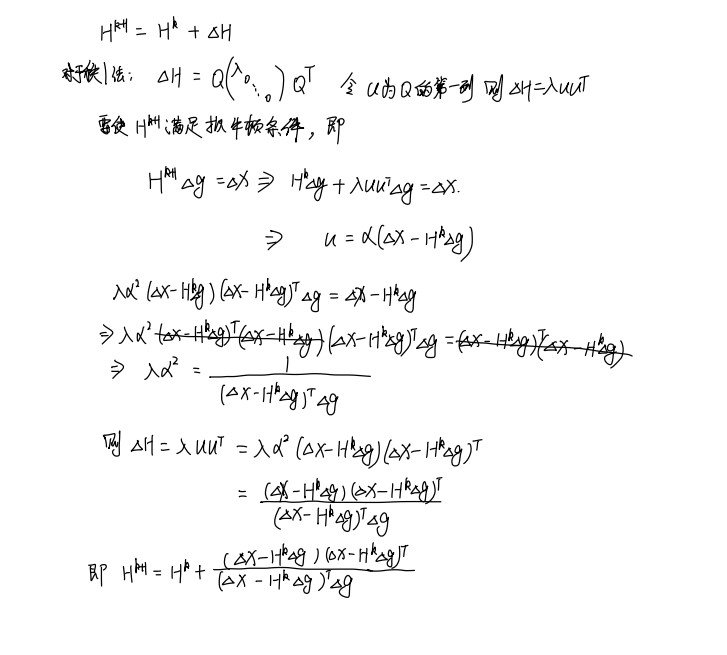 H^{k+1} = H^k + ΔH
对于秩1法: ΔH = Q(λ 0 ⋱ 0) Q^T 令 u为Q的第一列 则 ΔH=λuu^T
要使 H^{k+1} 满足拟牛顿条件, 即
H^{k+1} Δg = Δx ⇒ H^k Δg + λuu^T Δg = Δx.
⇒ u = α(Δx - H^k Δg)
λα² (Δx - H^k g) (Δx - H^k Δg)^T Δg = Δx - H^k Δg
⇒ λα² (Δx - H^k Δg)^T (Δx - H^k Δg) (Δx - H^k Δg)^T Δg = (Δx - H^k Δg)^T (Δx - H^k Δg)
⇒ λα² = 1 / (Δx - H^k Δg)^T Δg
则 ΔH = λuu^T = λα² (Δx - H^k Δg) (Δx - H^k Δg)^T
= (Δx - H^k Δg) (Δx - H^k Δg)^T / (Δx - H^k Δg)^T Δg
即 H^{k+1} = H^k + (Δx - H^k Δg) (Δx - H^k Δg)^T / (Δx - H^k Δg)^T Δg